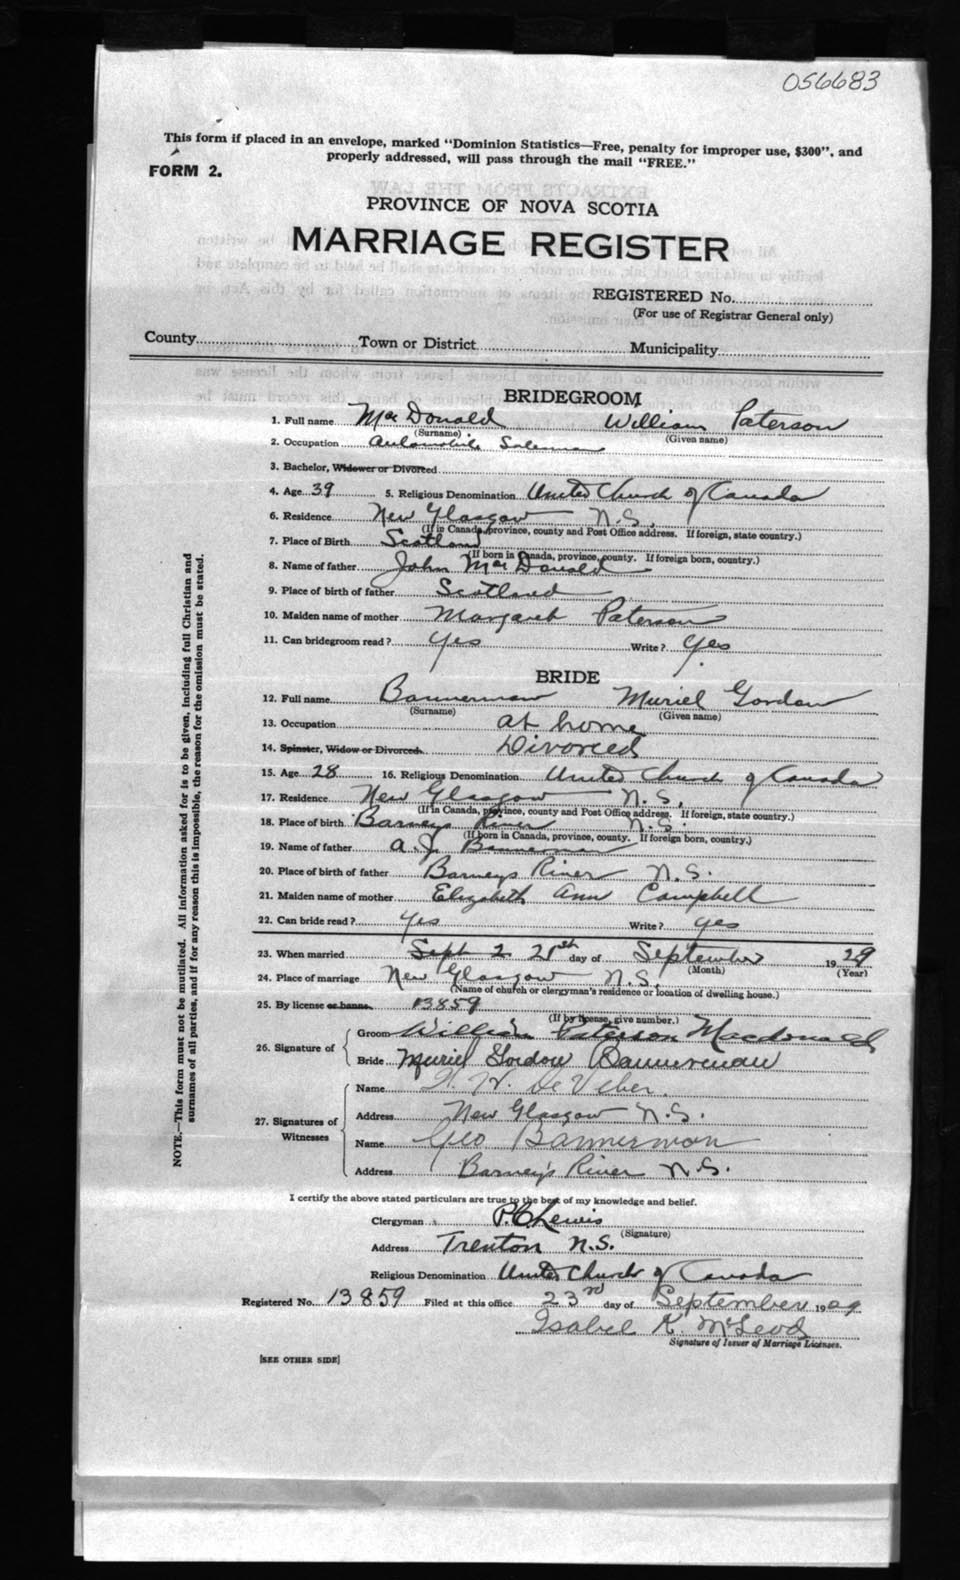 056683
This form if placed in an envelope, marked "Dominion Statistics—Free, penalty for improper use, $300", and
properly addressed, will pass through the mail "FREE."
FORM 2.
PROVINCE OF NOVA SCOTIA
MARRIAGE REGISTER
REGISTERED No.
(For use of Registrar General only)
County Town or District Municipality
BRIDEGROOM
1. Full name MacDonald William Paterson
(Surname) (Given name)
2. Occupation Automobile Salesman
3. Bachelor, Widower or Divorced
4. Age 39 5. Religious Denomination United Church of Canada
6. Residence New Glasgow N.S.
(If in Canada, province, county and Post Office address. If foreign, state country.)
7. Place of Birth Scotland
(If born in Canada, province, county. If foreign born, country.)
8. Name of father John MacDonald
9. Place of birth of father Scotland
10. Maiden name of mother Margaret Paterson
11. Can bridegroom read? yes Write? yes
BRIDE
12. Full name Bannerman Muriel Gordon
(Surname) (Given name)
13. Occupation at home
14. Spinster, Widow or Divorced. Divorced
15. Age 28 16. Religious Denomination United Church of Canada
17. Residence New Glasgow N.S.
(If in Canada, province, county and Post Office address. If foreign, state country.)
18. Place of birth Barneys River N.S.
(If born in Canada, province, county. If foreign born, country.)
19. Name of father A. J. Bannerman
20. Place of birth of father Barneys River N.S.
21. Maiden name of mother Elizabeth Ann Campbell
22. Can bride read? Yes Write? yes
23. When married Sept 2 21st day of September 1929
(Month) (Year)
24. Place of marriage New Glasgow N.S.
(Name of church or clergyman's residence or location of dwelling house.)
25. By license or banns. 13859
(If by license, give number.)
26. Signature of Groom William Paterson Macdonald
Bride Muriel Gordon Bannerman
27. Signatures of Witnesses
Name W. DeVeber
Address New Glasgow N.S.
Name Geo Bannerman
Address Barney's River N.S.
I certify the above stated particulars are true to the best of my knowledge and belief.
Clergyman P.C. Lewis
(Signature)
Address Trenton N.S.
Religious Denomination United Church of Canada
Registered No. 13859 Filed at this office 23rd day of September 1929
Isabel K. McLeod
Signature of Issuer of Marriage Licenses.
[SEE OTHER SIDE]
NOTE.—This form must not be mutilated. All information asked for is to be given, including full Christian and
surnames of all parties, and if for any reason this is impossible, the reason for the omission must be stated.